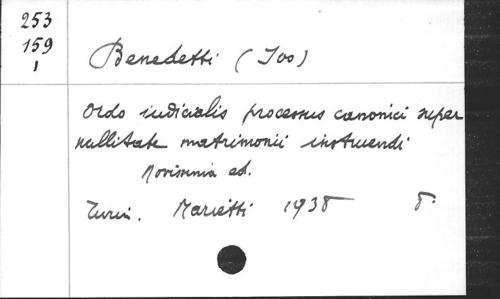 253
159
1
Benedetti (Ivo)
Ordo iudicialis processus canonici super
nullitate matrimonii instruendi
Novissima ed.
Turin. Marietti 1938 8°